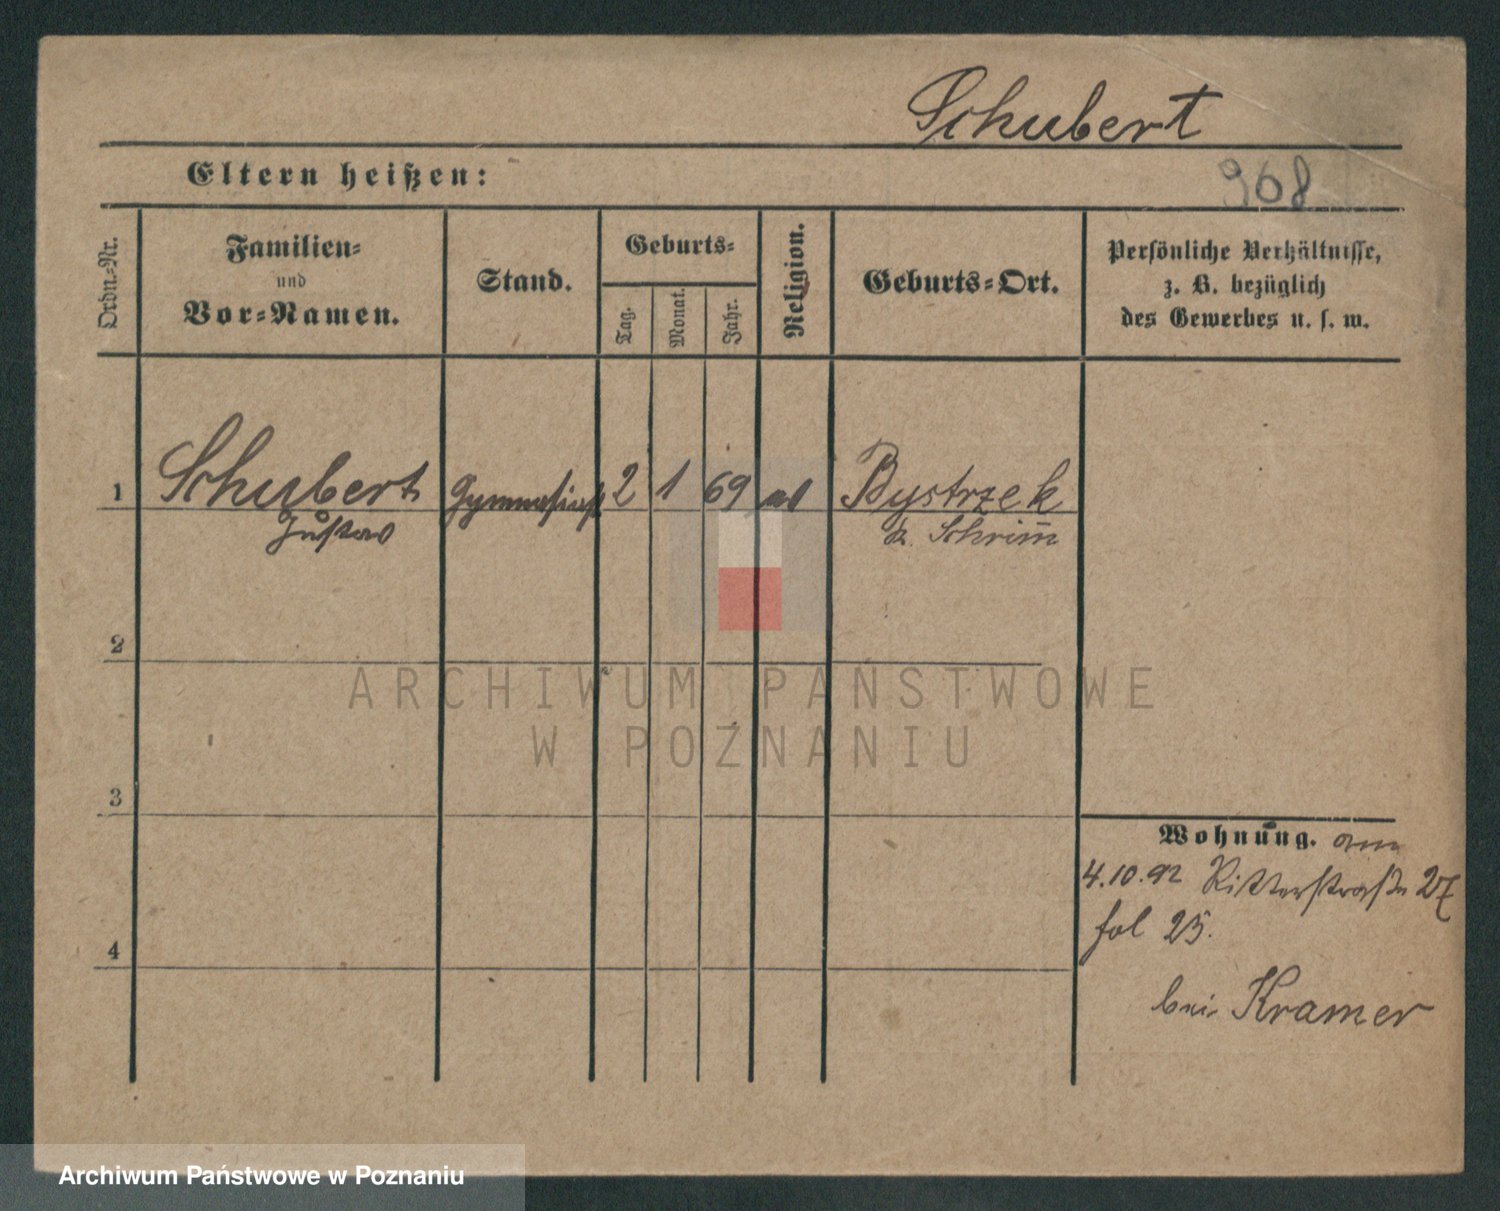 Schubert
Eltern heißen:
968
Ordn.-Nr.
Familien-
und
Vor-Namen.
Stand.
Geburts-
Tag.
Monat.
Jahr.
Religion.
Geburts-Ort.
Persönliche Verhältnisse,
z. B. bezüglich
des Gewerbes u. s. w.
1 Schubert Gymnasiast 2 1 69 Bystrzek
Gustav Kr. Schrim̅
2
ARCHIWUM PAŃSTWOWE
W POZNANIU
3
Wohnung. am
4.10.92 Ritterstraße 27
fol 25.
4
bei Kramer
Archiwum Państwowe w Poznaniu